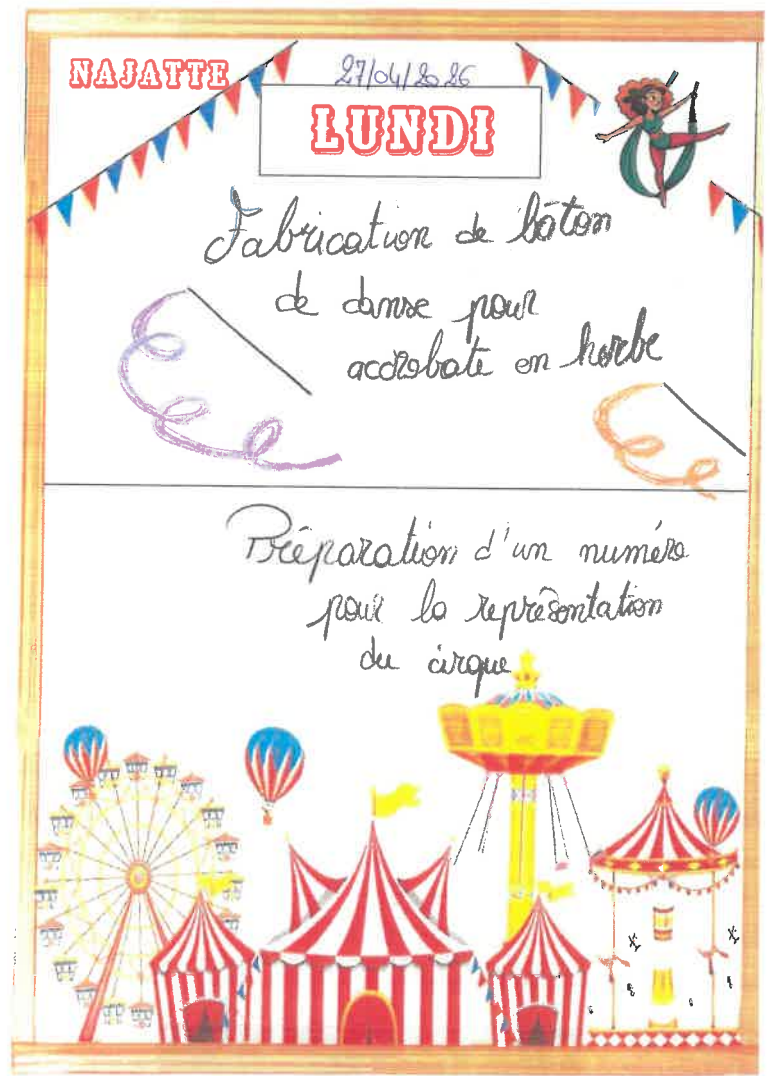 NAJATTE
27/04/2026
LUNDI
Fabrication de bâton
de danse pour
accrobate en herbe
Préparation d'un numéro
pour la représentation
du cirque